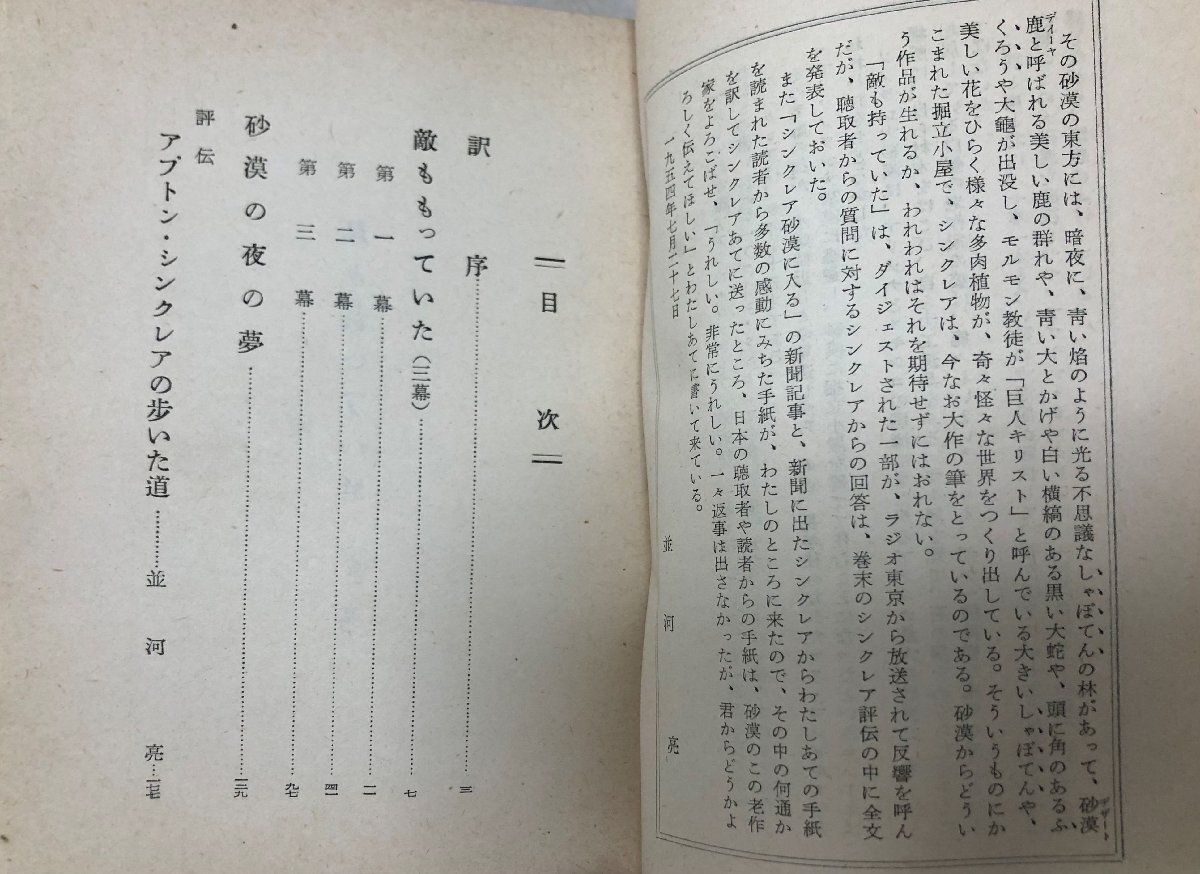 その砂漠の東方には、暗夜に、靑い焰のように光る不思議なしゃぼてんの林があって、砂漠
デザート
鹿と呼ばれる美しい鹿の群れや、靑い大とかげや白い横縞のある黒い大蛇や、頭に角のあるふ
ディーヤ
くろうや大龜が出没し、モルモン教徒が「巨人キリスト」と呼んでいる大きいしゃぼてんや、
美しい花をひらく様々な多肉植物が、奇々怪々な世界をつくり出している。そういうものにか
こまれた掘立小屋で、シンクレアは、今なお大作の筆をとっているのである。砂漠からどうい
う作品が生れるか、われわれはそれを期待せずにはおれない。
「敵も持っていた」は、ダイジェストされた一部が、ラジオ東京から放送されて反響を呼ん
だが、聴取者からの質問に対するシンクレアからの回答は、巻末のシンクレア評伝の中に全文
を発表しておいた。
また「シンクレア砂漠に入る」の新聞記事と、新聞に出たシンクレアからわたしあての手紙
を読まれた読者から多数の感動にみちた手紙が、わたしのところに来たので、その中の何通か
を訳してシンクレアあてに送ったところ、日本の聴取者や読者からの手紙は、砂漠のこの老作
家をよろこばせ、「うれしい。非常にうれしい。一々返事は出さなかったが、君からどうかよ
ろしく伝えてほしい」とわたしあてに書いて来ている。
一九五四年七月二十七日
並河亮
目次
訳序……三
敵ももっていた(三幕)……七
第一幕……一一
第二幕……四一
第三幕……九七
砂漠の夜の夢……一三九
評伝
アプトン・シンクレアの歩いた道……並河亮…一七七